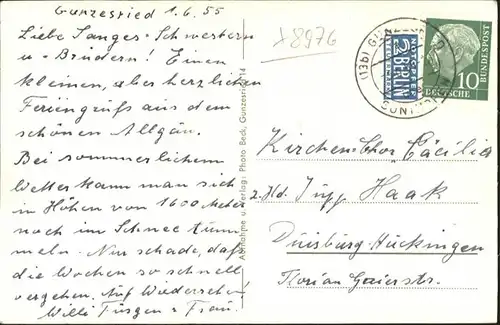 Gunzesried 1.6.55
Liebe Sanges-Schwestern
u-Brüdern! Einen
kleinen, aber herzlichen
Feriengruß aus dem
schönen Allgäu.
Bei sommerlichem
Wetter kann man sich
in Höhen von 1600 Meter
noch im Schnee tum
meln. Nur schade, daß
die Wochen so schnell
vergehen. Auf Wiedersehen!
Willi Füsgen u Frau.
Aufnahme u. Verlag: Photo Beck, Gunzesried
8976
(13b) GUNZ
NOTOPFER
2 BERLIN
STEUERMARKE
10
DEUTSCHE BUNDESPOST
Kirchenchor Cäcilia
z. Hd. Jupp Haak
Duisburg-Hückingen
Florian Geierstr.